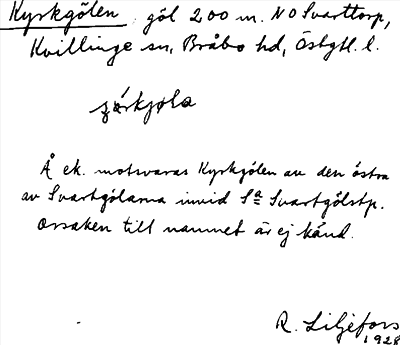 Kyrkgölen, göl 200 m. NO Svarttorp,
Kvillinge sn, Bråbo hd, Östgtl. l.
Å ek. motsvaras Kyrkgölen av den östra
av Svartgölarna invid Sa Svartgölstp.
Orsaken till namnet är ej känd.
R. Liljefors
1928